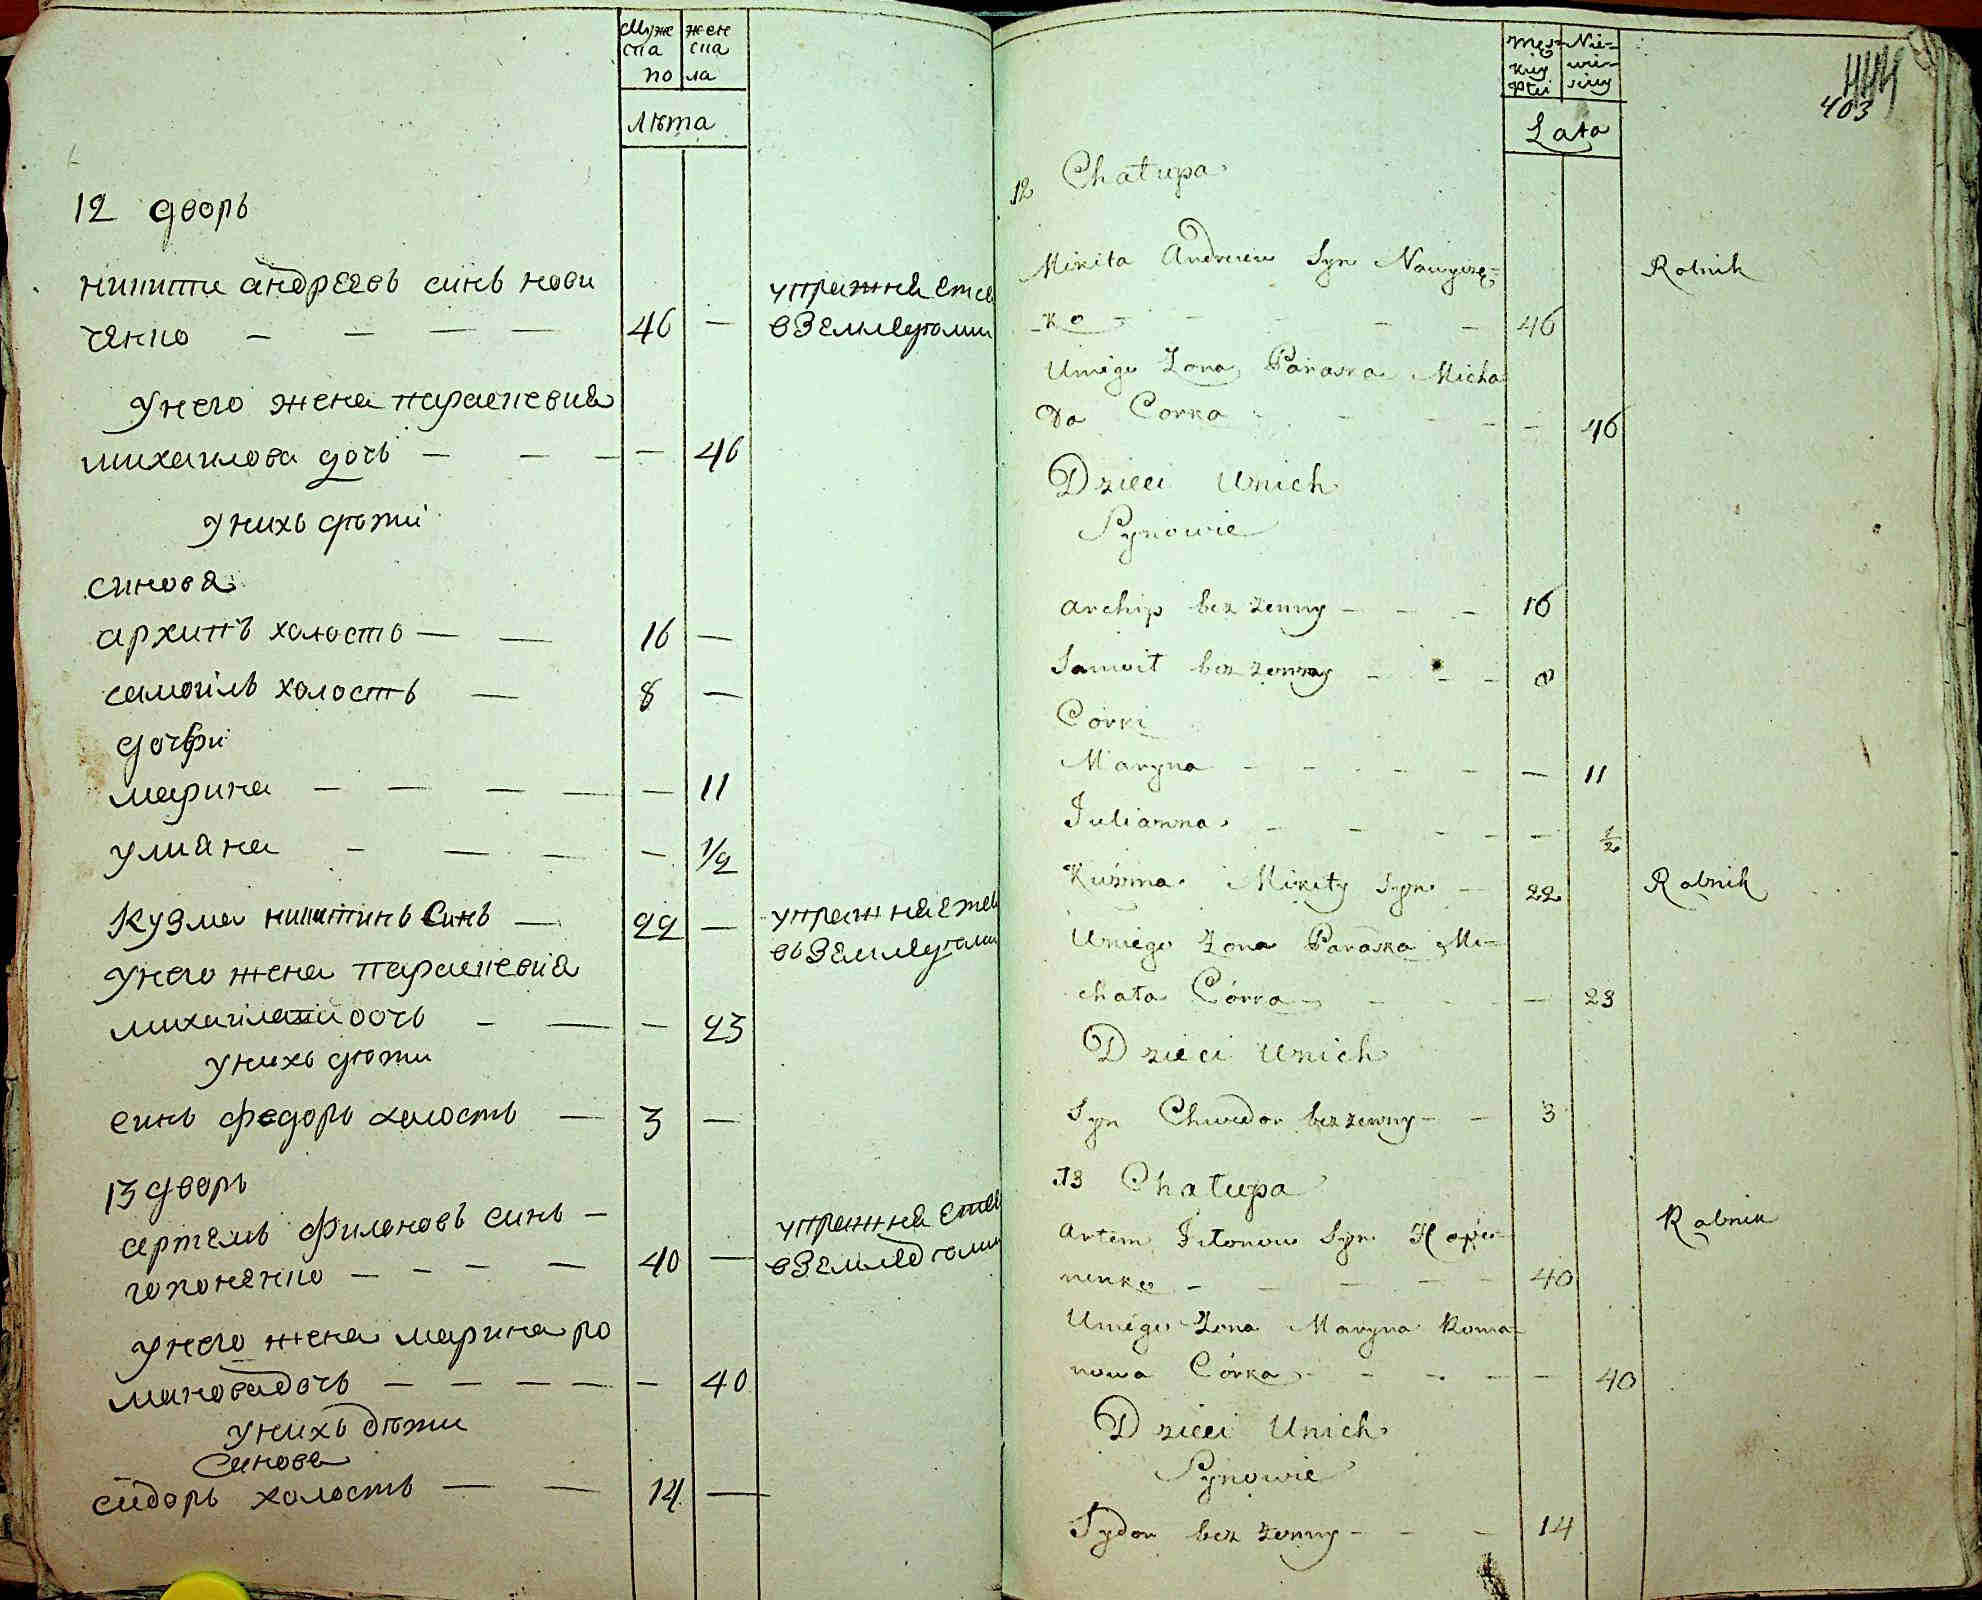 Муже жен
ска ска
по ла
лѣта
12 дворъ
никита андрѣевъ синъ нови
ченко — — — — 46 —
упражнѣется
в землѣделии
Унего жена параскевия
михаилова дочъ — — — — 46
Унихъ дѣти
синовя
архипъ холостъ — — 16 —
самоилъ холостъ — 8 —
дочѣри
марина — — — — — 11
улияна — — — — 1/2
Кузма никитинъ Синъ — 22 —
упражнѣется
въ землѣделии
Унего жена параскевия
михаила дочъ — — — 23
Унихъ дѣти
синъ федоръ холостъ — 3 —
13 дворъ
артемъ филоновъ синъ —
гопоненко — — — — 40 —
упражнѣется
в землѣделии
Унего жена марина ро
манова дочъ — — — — — 40
Унихъ дѣти
Синовя
сидоръ холостъ — — 14 —
Męz Nie-
kiey wie-
Płci sciey
Lata
403
12 Chałupa
Mikita Andreiew Syn Nowicze-
-ko - - - - 46
Rolnik
Uniego Zona Paraska Micha
ła Corka - - - - - 46
Dzieci Unich
Synowie
Archip bez zenny - - - 16
Samoił bez zenny - - - - 8
Córki
Maryna - - - - - - 11
Julianna - - - - - 1/2
Kuzma Mikity Syn - 22
Rolnik
Uniego Zona Paraska Mi-
chała Córka - - - - - 23
Dzieci Unich
Syn Chwedor bez zenny - - 3
13 Chałupa
Artem Filonow Syn Hopo-
nenko - - - - - 40
Rolnik
Uniego Zona Maryna Roma-
nowa Córka - - - - - 40
Dzieci Unich
Synowie
Sydor bez zenny - - - 14